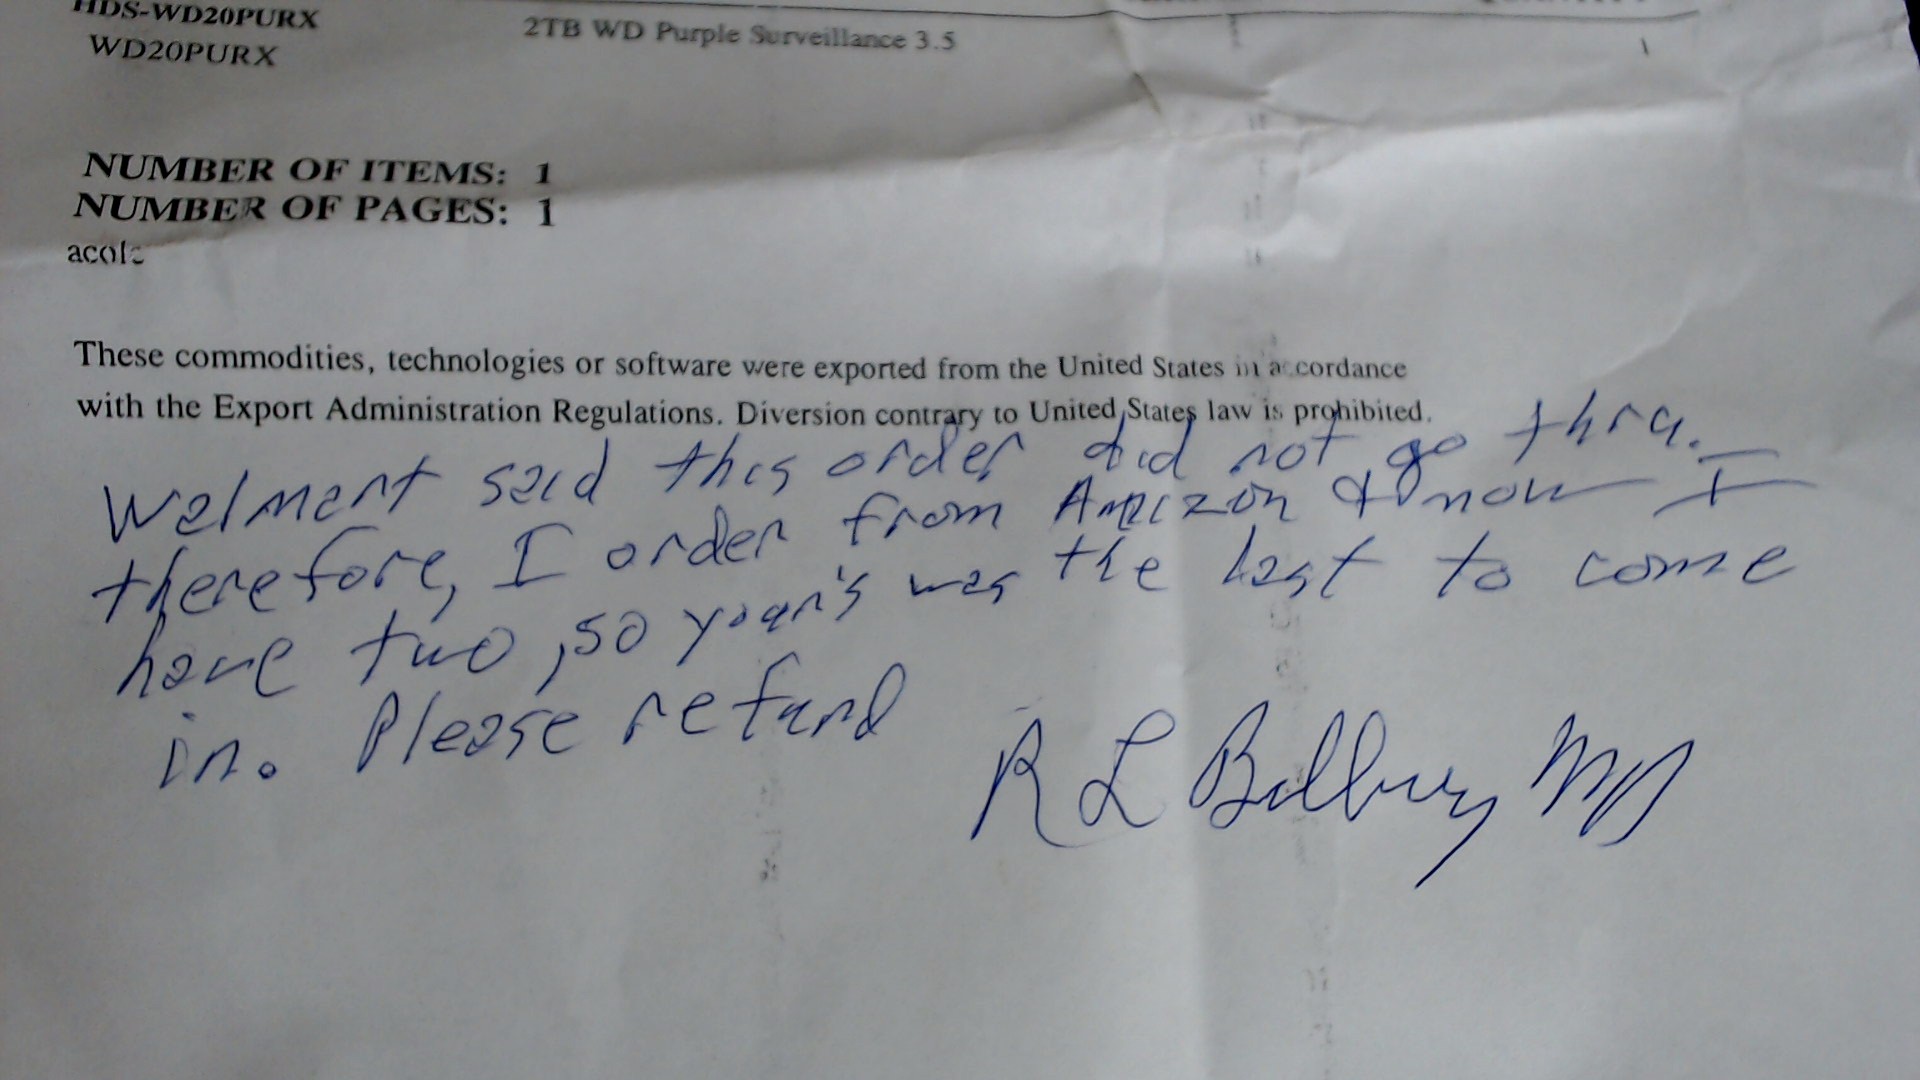 HDS-WD20PURX 2TB WD Purple Surveillance 3.5 1
WD20PURX
NUMBER OF ITEMS: 1
NUMBER OF PAGES: 1
These commodities, technologies or software were exported from the United States in accordance
with the Export Administration Regulations. Diversion contrary to United States law is prohibited.
Walmart said this order did not go thru.
therefore, I order from Amazon & now I
have two, so your's was the last to come
in. Please refund
R L MD